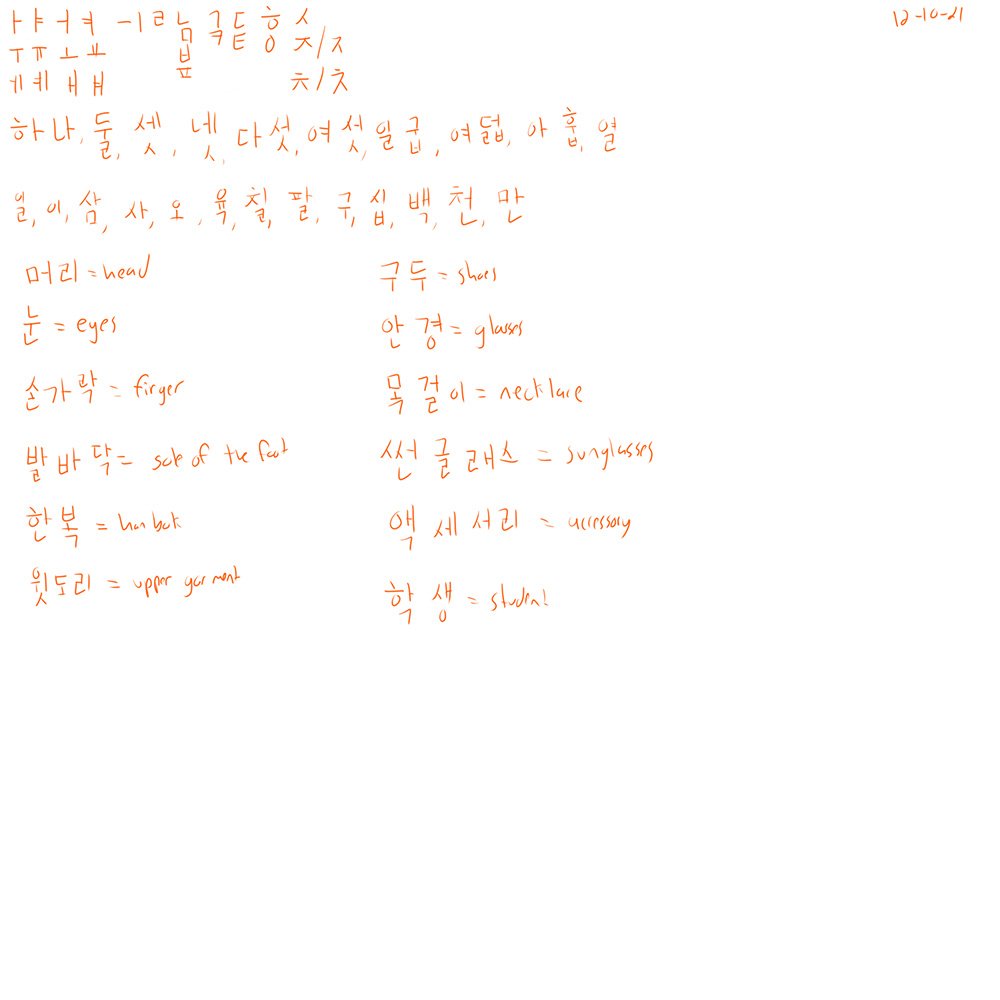 12-10-21
ㅏ ㅑ ㅓ ㅕ ㅡ ㅣ ㄹ ㄴ ㅁ ㄱ ㅋ ㄷ ㅌ ㅎ ㅇ ㅅ
ㅜ ㅠ ㅗ ㅛ ㅂ ㅍ ㅈ/ㅈ
ㅔ ㅖ ㅐ ㅒ ㅊ/ㅊ
하나, 둘, 셋, 넷, 다섯, 여섯, 일굽, 여덟, 아홉, 열
일, 이, 삼, 사, 오, 육, 칠, 팔, 구, 십, 백, 천, 만
머리 = head
눈 = eyes
손가락 = finger
발바닥 = sole of the foot
한복 = hanbok
윗도리 = upper garment
구두 = shoes
안경 = glasses
목걸이 = necklace
썬글래스 = sunglasses
액세서리 = accessory
학생 = student